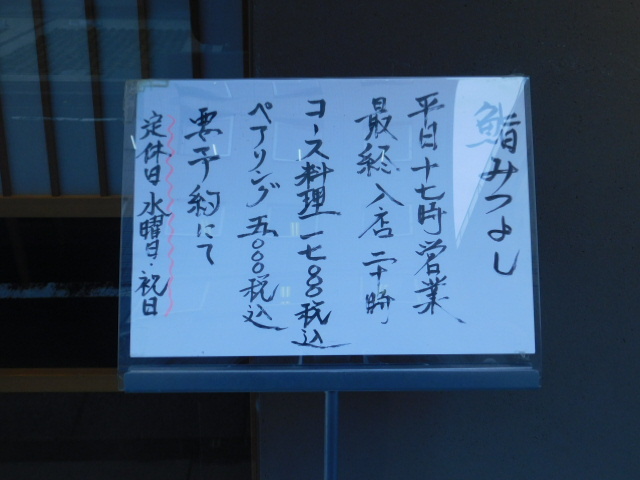 鮨みつよし
平日十七時営業
最終入店二十時
コース料理一七〇〇〇税込
ペアリング五〇〇〇税込
要予約にて
定休日・水曜日・祝日